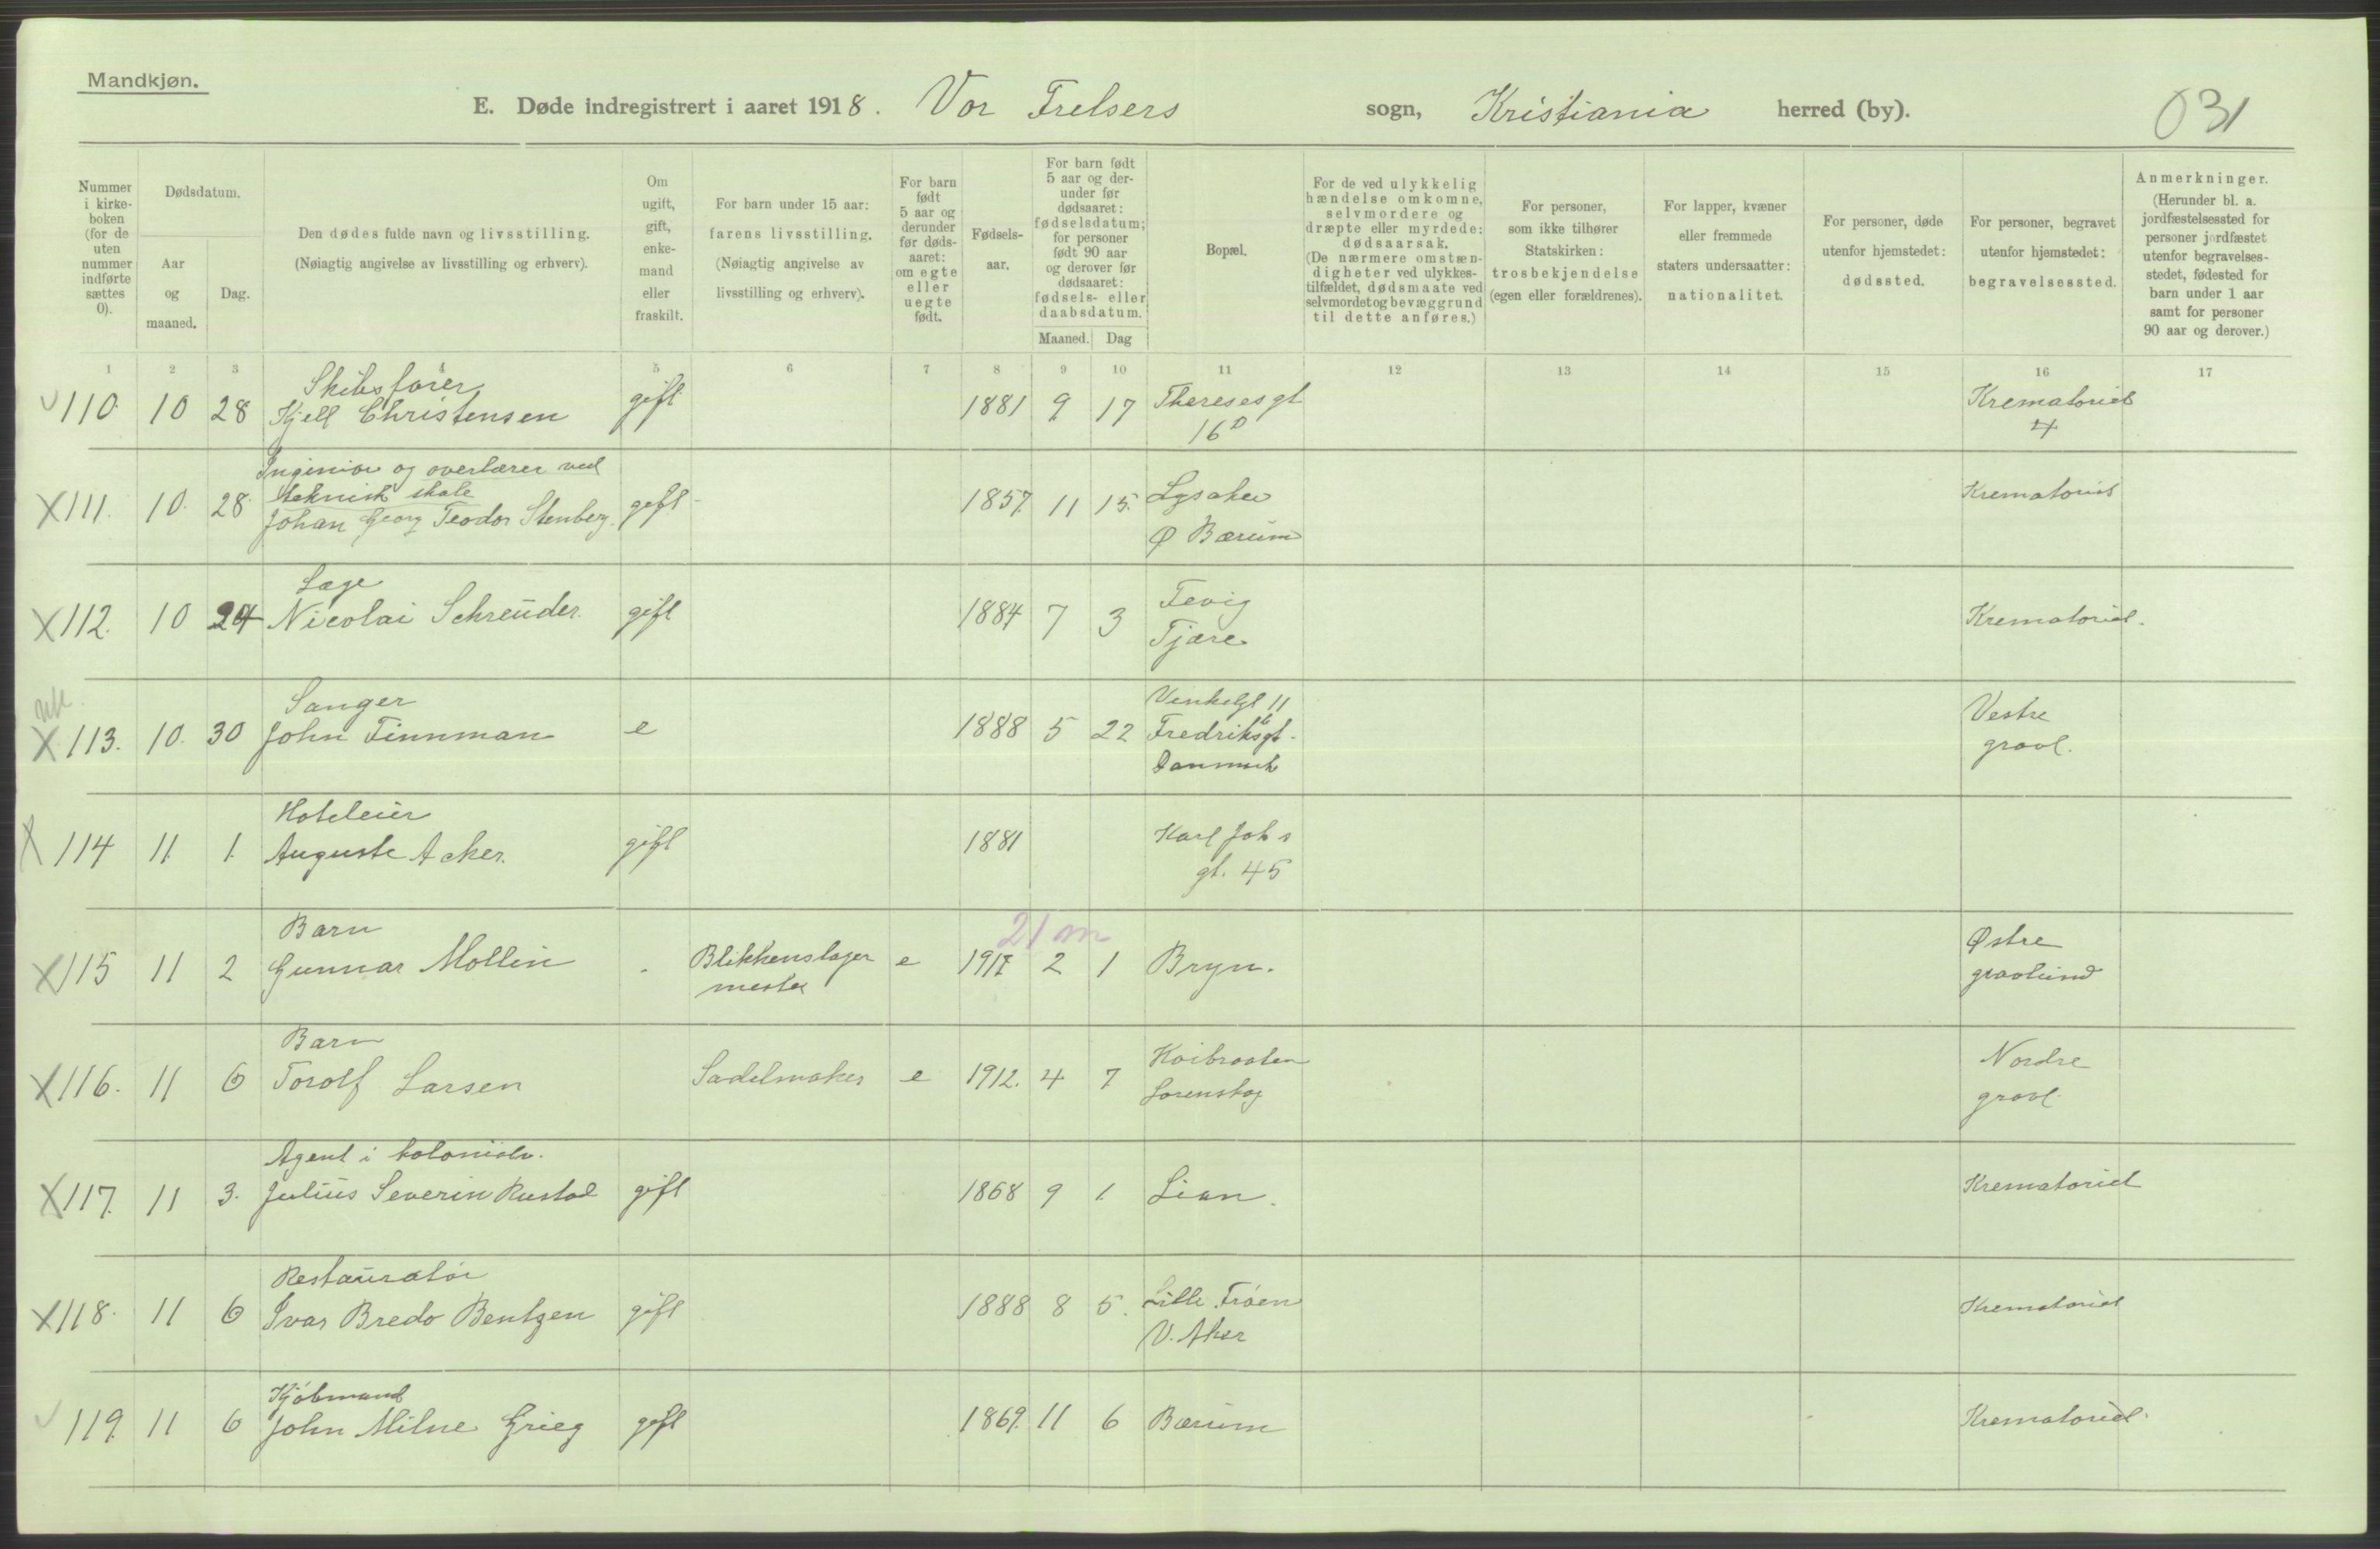 Mandkjøn.
E. Døde indregistrert i aaret 1918. Vor Frelsers sogn, Kristiania herred (by). 031
Nummer i kirkeboken (for de uten nummer indførte sættes 0).
Dødsdatum.
Aar og maaned.
Dag.
Den dødes fulde navn og livsstilling.
(Nøiagtig angivelse av livsstilling og erhverv).
Om ugift, gift, enkemand eller fraskilt.
For barn under 15 aar: farens livsstilling.
(Nøiagtig angivelse av livsstilling og erhverv).
For barn født 5 aar og derunder før dødsaaret: om egte eller uegte født.
Fødselsaar.
For barn født 5 aar og derunder før dødsaaret: fødselsdatum; for personer født 90 aar og derover før dødsaaret: fødsels- eller daabsdatum.
Maaned. Dag
Bopæl.
For de ved ulykkelig hændelse omkomne, selvmordere og dræpte eller myrdede: dødsaarsak.
(De nærmere omstændigheter ved ulykkestilfældet, dødsmaate ved selvmordet og bevæggrund til dette anføres.)
For personer, som ikke tilhører Statskirken: trosbekjendelse (egen eller forældrenes).
For lapper, kvæner eller fremmede staters undersaatter: nationalitet.
For personer, døde utenfor hjemstedet: dødssted.
For personer, begravet utenfor hjemstedet: begravelsessted.
Anmerkninger.
(Herunder bl. a. jordfæstelsessted for personer jordfæstet utenfor begravelsesstedet, fødested for barn under 1 aar samt for personer 90 aar og derover.)
1 2 3 4 5 6 7 8 9 10 11 12 13 14 15 16 17
Skibsfører
110. 10 28 Kjell Christensen gift 1881 9 17 Theresesgt Krematoriet
16D 4
Ingeniør og overlærer ved
teknisk skole
X 111. 10. 28. Johan Georg Teodor Stenberg. gift 1857. 11 15. Lysaker Krematoriet
Ø Bærum
Læge
X 112. 10 24 Nicolai Schreuder. gift 1884 7 3 Fevig Krematoriet.
Tjære
Sanger Venkelgt 11
X 113. 10. 30 John Finnman e 1888 5 22 Fredriksgt. Vestre
Danmark gravl.
Hoteleier
X 114 11 1. Auguste Acker. gift 1881 Karl Johs
gt. 45
Barn 21 m
X 115 11 2 Gunnar Mollin Blikkenslager e 1917 2 1 Bryn. Østre
mester gravlund
Barn
X 116. 11 6 Torolf Larsen Sadelmaker e 1912. 4 7 Lorenskog Nordre
gravl.
Agent i kolonialv.
X 117. 11 3. Julius Severin Rustad gift 1868 9 1 Lian. Krematoriet
Restauratør
X 118. 11 6 Ivar Bredo Bentzen gift 1888 8 5. Lille Frøen Krematoriet
V. Aker
Kjøbmand
119. 11 6 John Milne Grieg gift 1869. 11 6 Bærum Krematoriet.